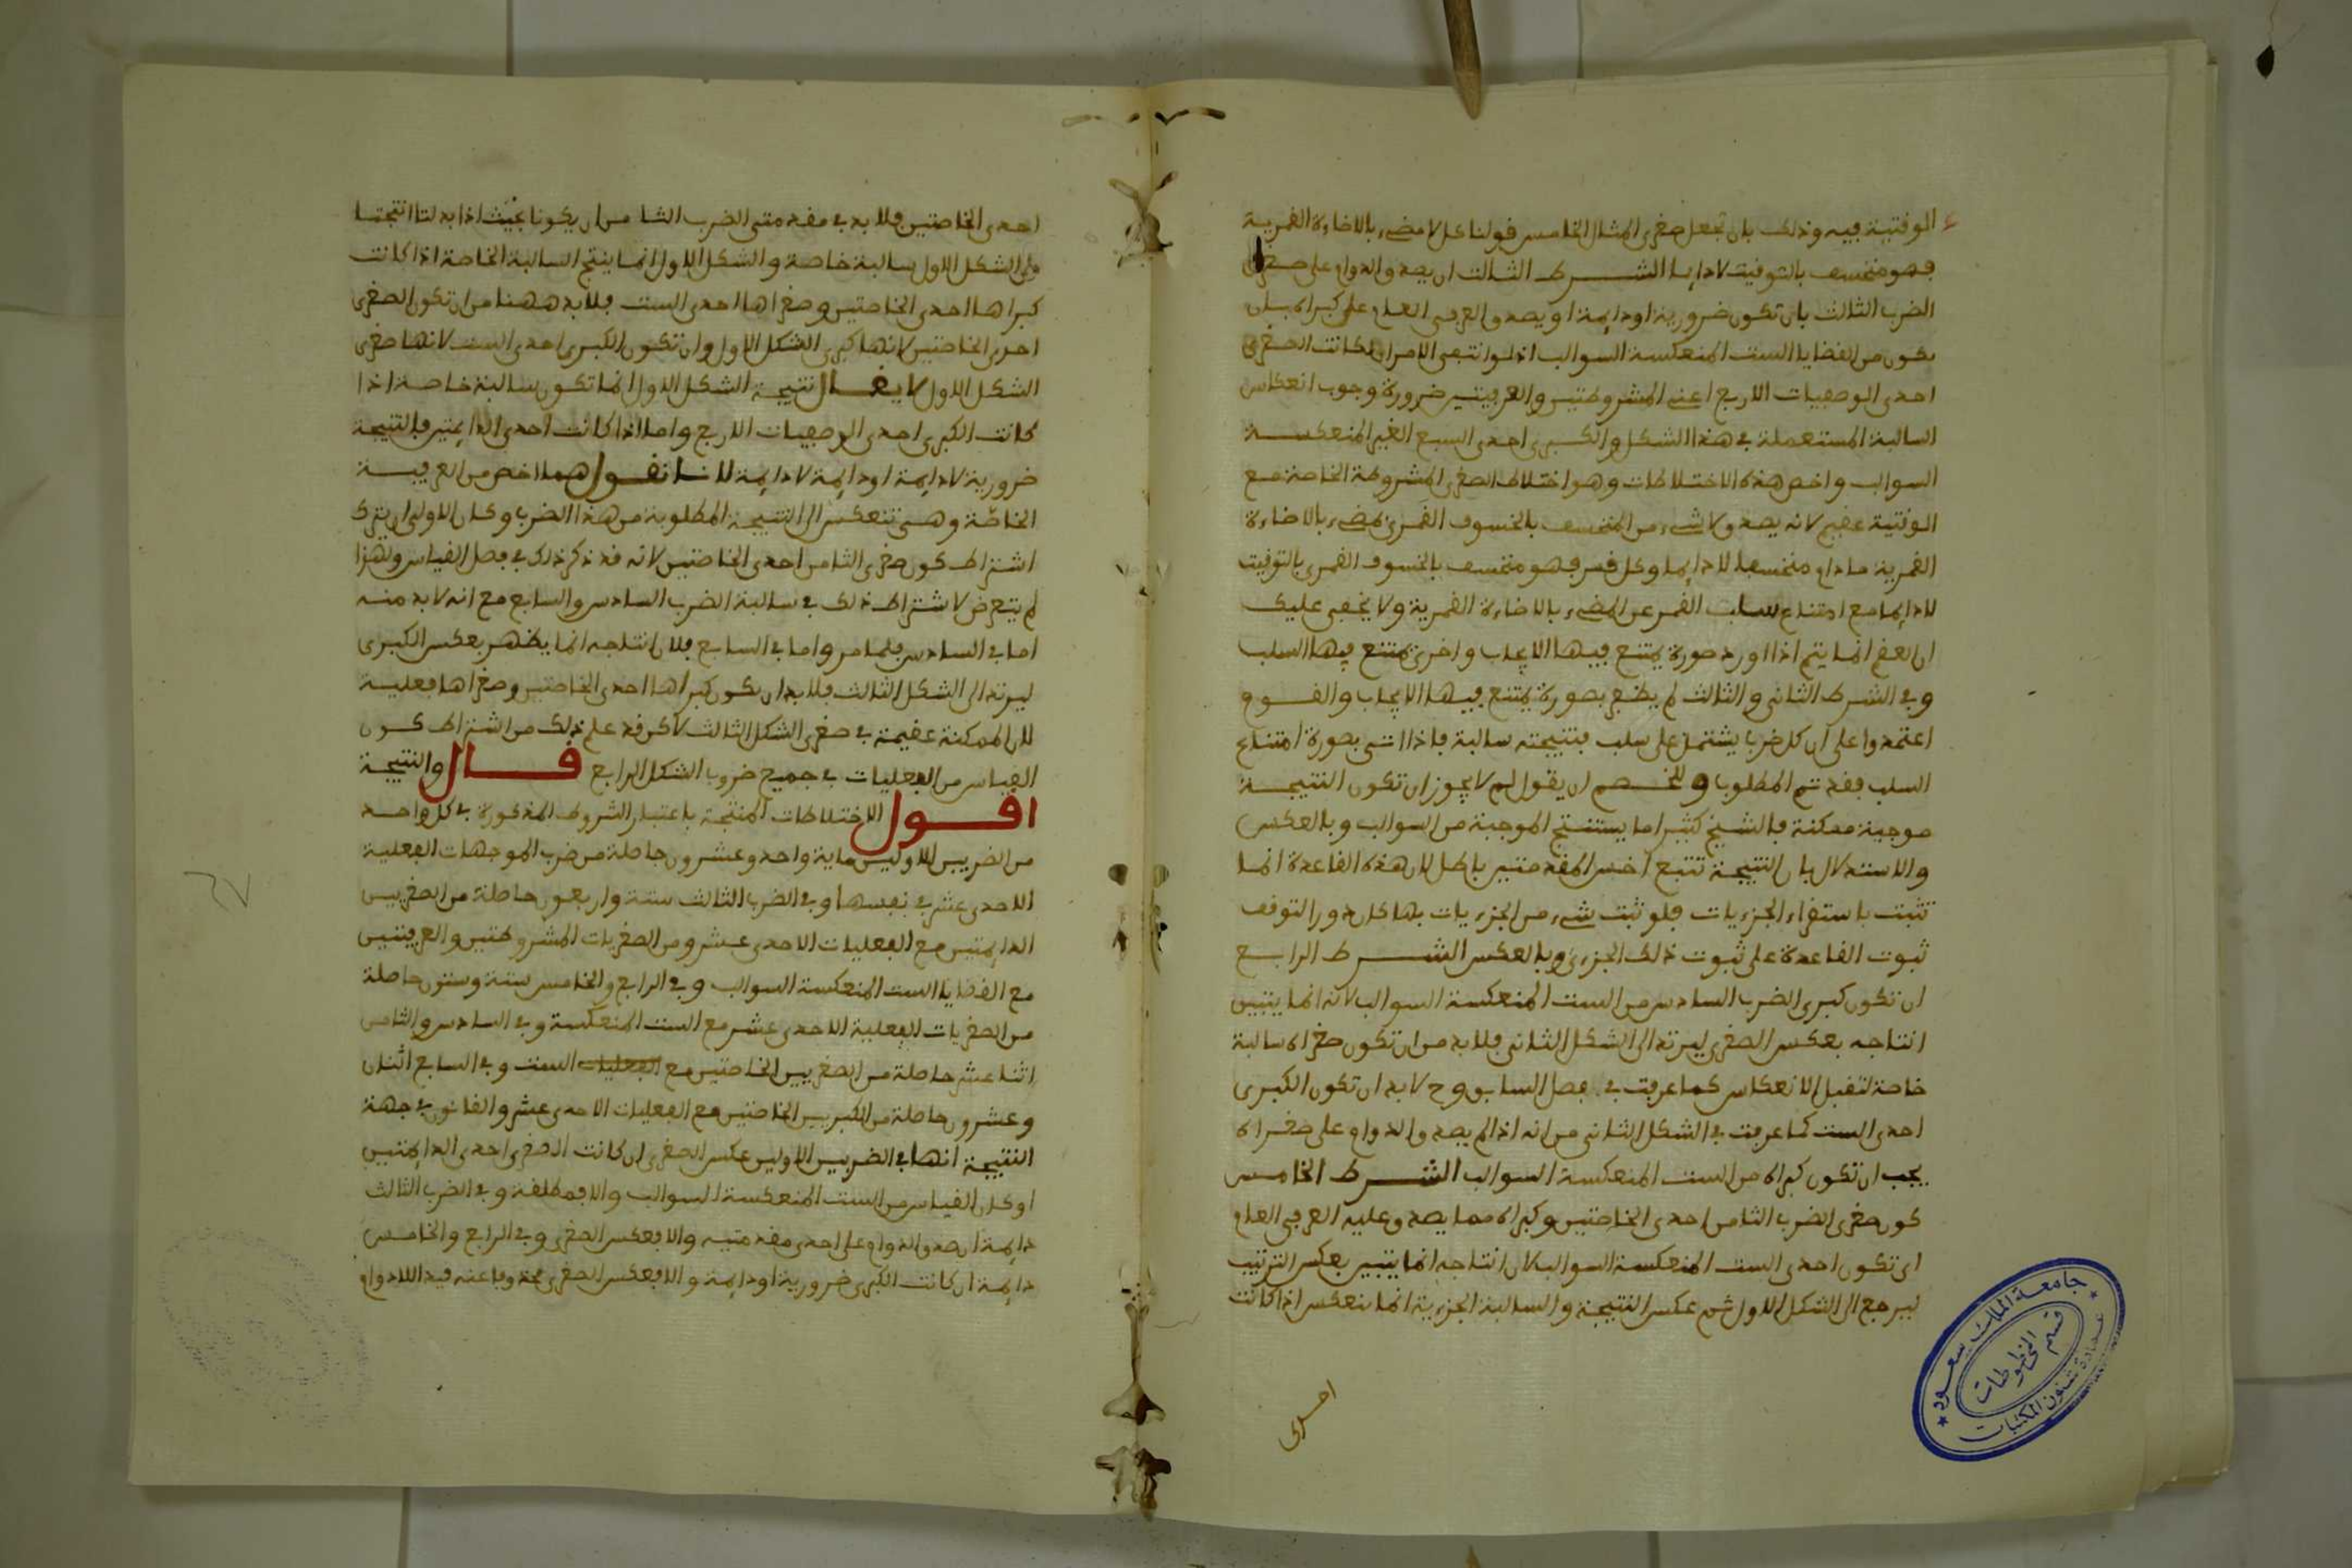 الوقتية فيه وذلك بان تجعل صغرى المثال الخامس قولنا كل لا مضيء بالاضاءة القمرية
فهو منخسف بالتوقيت لا دايما الشرط الثالث ان يصدق الدوام على صغرى
الضرب الثالث بان تكون ضرورية او دايمة او يصدق العرفي العام على كبراه بان
يكون من القضايا الست المنعكسة السوالب اذ لو انتفى الامران لكانت الصغرى
احدى الوصفيات الاربع اعني المشروطتين والعرفيتين ضرورة وجوب انعكاس
السالبة المستعملة في هذا الشكل والكبرى احدى السبع الغير المنعكسة
السوالب واخص هذه الاختلاطات وهو اختلاط الصغرى المشروطة الخاصة مع
الوقتية عقيم لانه يصدق لا شيء من المنخسف بالخسوف القمري بمضيء بالاضاءة
القمرية ما دام منخسفا لا دايما وكل قمر فهو منخسف بالخسوف القمري بالتوقيت
لا دايما مع امتناع سلب القمر عن المضيء بالاضاءة القمرية ولا يخفى عليك
ان العقم انما يتم اذا اورد صورة يمتنع فيها الايجاب واخرى يمتنع فيها السلب
وفي الشرط الثاني والثالث لم يظفر بصورة يمتنع فيها الايجاب والقوم
اعتمدوا على ان كل ضرب يشتمل على سلب فنتيجته سالبة فاذا اتى بصورة امتناع
السلب فقد تم المطلوب وللخصم ان يقول لم لا يجوز ان تكون النتيجة
موجبة ممكنة فالشيخ كثيرا ما يستنتج الموجبة من السوالب وبالعكس
والاستدلال بان النتيجة تتبع اخس المقدمتين باطل لان هذه القاعدة انما
تثبت باستقراء الجزءيات فلو ثبت شيء من الجزءيات بها كان دورا لتوقف
ثبوت القاعدة على ثبوت ذلك الجزءي وبالعكس الشرط الرابع
ان تكون كبرى الضرب السادس من الست المنعكسة السوالب لانه انما يتبين
انتاجه بعكس الصغرى ليرتد الى الشكل الثاني فلا بد من ان تكون صغراه سالبة
خاصة لتقبل الانعكاس كما عرفت في فصل السابق وح لا بد ان تكون الكبرى
احدى الست كما عرفت في الشكل الثاني من انه اذا لم يصدق الدوام على صغراه
يجب ان تكون كبراه من الست المنعكسة السوالب الشرط الخامس
كون صغرى الضرب الثامن احدى الخاصتين وكبراه مما يصدق عليه العرفي العام
اي تكون احدى الست المنعكسة السوالب لان انتاجه انما يتبين بعكس الترتيب
ليرجع الى الشكل الاول ثم عكس النتيجة والسالبة الجزءية انما تنعكس اذا كانت
احدى
احدى الخاصتين فلا بد في مقدمتي الضرب الثامن ان يكونا بحيث اذا بدلتا انتجتا
في الشكل الاول سالبة خاصة والشكل الاول انما ينتج السالبة الخاصة اذا كانت
كبراها احدى الخاصتين وصغراها احدى الست فلا بد ههنا من ان تكون الصغرى
احدى الخاصتين لانها كبرى الشكل الاول وان تكون الكبرى احدى الست لانها صغرى
الشكل الاول لا يقال نتيجة الشكل الاول انما تكون سالبة خاصة اذا
كانت الكبرى احدى الوصفيات الاربع واما اذا كانت احدى الدايمتين فالنتيجة
ضرورية لا دايمة او دايمة لا دايمة لانا نقول هما اخص من العرفية
الخاصة وهي تنعكس الى النتيجة المطلوبة من هذا الضرب وكان الاولى ان يترك
اشتراط كون صغرى الثامن احدى الخاصتين لانه قد ذكر ذلك في فصل القياس ولهذا
لم يتعرض لاشتراط ذلك في سالبة الضرب السادس والسابع مع انه لا بد منه
اما في السادس فلما مر واما في السابع فلان انتاجه انما يظهر بعكس الكبرى
ليرتد الى الشكل الثالث فلا بد ان تكون كبراها احدى الخاصتين وصغراها فعلية
لان الممكنة عقيمة في صغرى الشكل الثالث لاكن قد علم ذلك من اشتراط كون
القياس من الفعليات في جميع ضروب الشكل الرابع قال والنتيجة
اقول الاختلاطات المنتجة باعتبار الشروط المذكورة في كل واحد
من الضربين الاولين ماية واحد وعشرون حاصلة من ضرب الموجهات الفعلية
الاحدى عشر في نفسها وفي الضرب الثالث ستة واربعون حاصلة من الصغريين
الدايمتين مع الفعليات الاحدى عشر ومن الصغريات المشروطتين والعرفيتين
مع القضايا الست المنعكسة السوالب وفي الرابع والخامس ستة وستون حاصلة
من الصغريات الفعلية الاحدى عشر مع الست المنعكسة وفي السادس والثامن
اثنا عشر حاصلة من الصغريين الخاصتين مع الفعليات الست وفي السابع اثنان
وعشرون حاصلة من الكبريين الخاصتين مع الفعليات الاحدى عشر والقانون في جهة
النتيجة انها في الضربين الاولين عكس الصغرى ان كانت الصغرى احدى الدايمتين
او كان القياس من الست المنعكسة السوالب والا فمطلقة وفي الضرب الثالث
دايمة ان صدق الدوام على احدى مقدمتيه والا فعكس الصغرى وفي الرابع والخامس
دايمة ان كانت الكبرى ضرورية او دايمة والا فعكس الصغرى محذوفا عنه قيد اللادوام
جامعة الملك سعود
عمادة شئون المكتبات
قسم المخطوطات